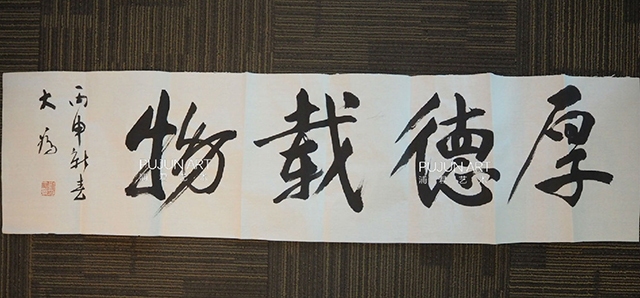 厚德载物
丙申新春
大为
PUJUN ART
PUJUN ART